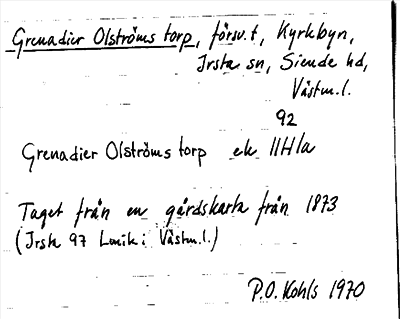 Grenadier Olströms torp, försv. t, Kyrkbyn,
Irsta sn, Siende hd,
Västm.l.
92
Grenadier Olströms torp ek 11H1a
Taget från en gårdskarta från 1873
(Irsta 97 Lmk i Västm.l.)
P.O. Kohls 1970